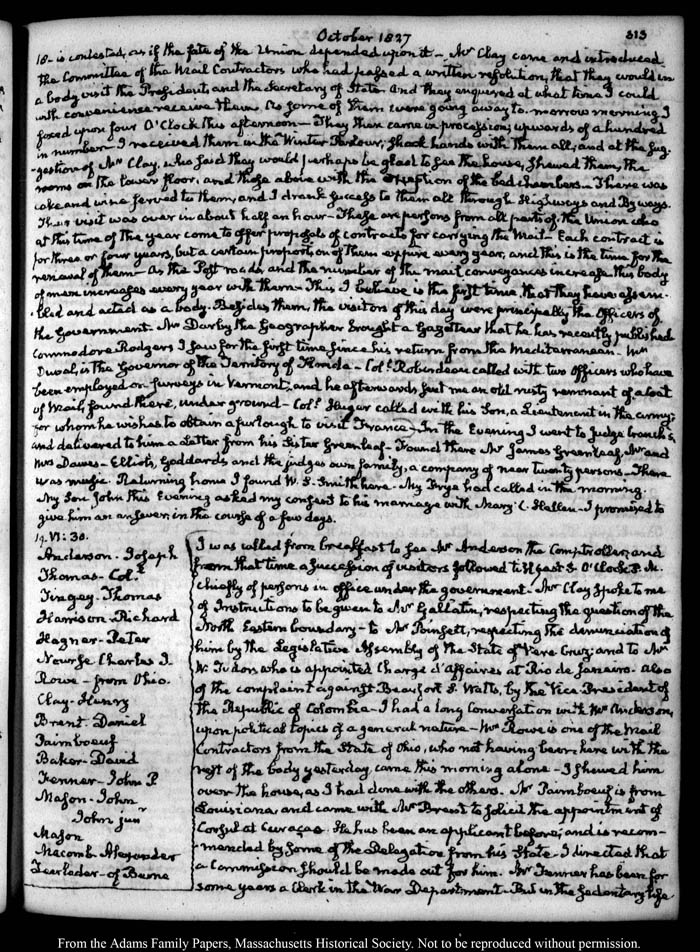 October 1827
313
18- is contested, as if the fate of the Union depended upon it- Mr Clay came and introduced
the Committee of the Mail Contractors who had passed a written resolution, that they would in
a body visit the President, and the Secretary of State and they enquired at what time I could
with convenience receive them. As some of them were going away to-morrow morning I
fixed upon four O'Clock this afternoon- They then came in procession, upwards of a hundred
in number- I received them in the Winter Parlour, shook hands with them all, and at the sug-
gestion of Mr Clay, who said they would perhaps be glad to see the house, shewed them, the
rooms on the lower floor, and those above with the exception of the bed chambers- There was
cake and wine served to them, and I drank success to them all through Highways and By ways.
Their visit was over in about half an hour- These are persons from all parts of the Union who
at this time of the year come to offer proposals of contracts for carrying the Mail- Each contract is
for three or four years, but a certain proportion of them expire every year, and this is the time for the
renewal of them- As the Post roads, and the number of the mail conveyances increase this body
of men increases every year with them- This I believe is the first time that they have assem-
bled and acted as a body. Besides them, the visitors of this day were principally the Officers of
the Government. Mr Darby the Geographer brought a Gazetteer that he has recently published
Commodore Rodgers I saw for the first time since his return from the Mediterranean. Mr
Duval, is the Governor of the Territory of Florida- Coll. Robindeau called with two Officers who have
been employed on surveys in Vermont, and he afterwards sent me an old rusty remnant of a Coat
of Mail, found there, under ground- Coll. Huger called with his Son, a Lieutenant in the army;
for whom he wishes to obtain a furlough to visit France- In the Evening I went to Judge Cranch's,
and delivered to him a Letter from his Sister Greenleaf- Found there Mr James Greenleaf, Mr and
Mrs Dawes- Elliots, Goddards and the judges own family; a company of near twenty persons- There
was music. Returning home I found W. S. Smith here- Mr Frye had called in the morning.
My Son John this Evening asked my consent to his marriage with Mary C. Hellen- I promised to
give him an answer, in the course of a few days.
19. VI: 30.
Anderson- Joseph
Thomas- Coll.
Tingey- Thomas
Harrison- Richard
Hagner- Peter
Nourse Charles J.
Rowe- from Ohio.
Clay- Henry
Brent. Daniel
Paimboeuf
Baker- David
Fenner- John P.
Mason- John
John junr
Mason
Macomb- Alexander
Learleader- of Berne
I was called from breakfast to see Mr Anderson the Comptroller; and
from that time a succession of visitors followed to past 5 O'Clock P.M.
chiefly of persons in office under the government- Mr Clay spoke to me
of Instructions to be given to Mr Gallatin, respecting the question of the
North Eastern boundary- to Mr Poinsett, respecting the denunciation of
him by the Legislative Assembly of the State of Vera Cruz; and to Mr
W. Tudor, who is appointed Chargé d'affaires at Rio de Janeiro. Also
of the complaint against Beaufort T. Watts, by the Vice-President of
the Republic of Colombia- I had a long Conversation with Mr Anderson,
upon political topics of a general nature- Mr Rowe is one of the Mail
Contractors from the State of Ohio, who not having been here with the
rest of the body yesterday, came this morning alone- I shewed him
over the house, as I had done with the others. Mr Paimboeuf is from
Louisiana, and came with Mr Brent to solicit the appointment of
Consul at Curaçao. He has been an applicant before; and is recom-
mended by some of the Delegation from his State- I directed that
a Commission should be made out for him. Mr Fenner has been for
some years a Clerk in the War Department- But in the sedentary life
From the Adams Family Papers, Massachusetts Historical Society. Not to be reproduced without permission.